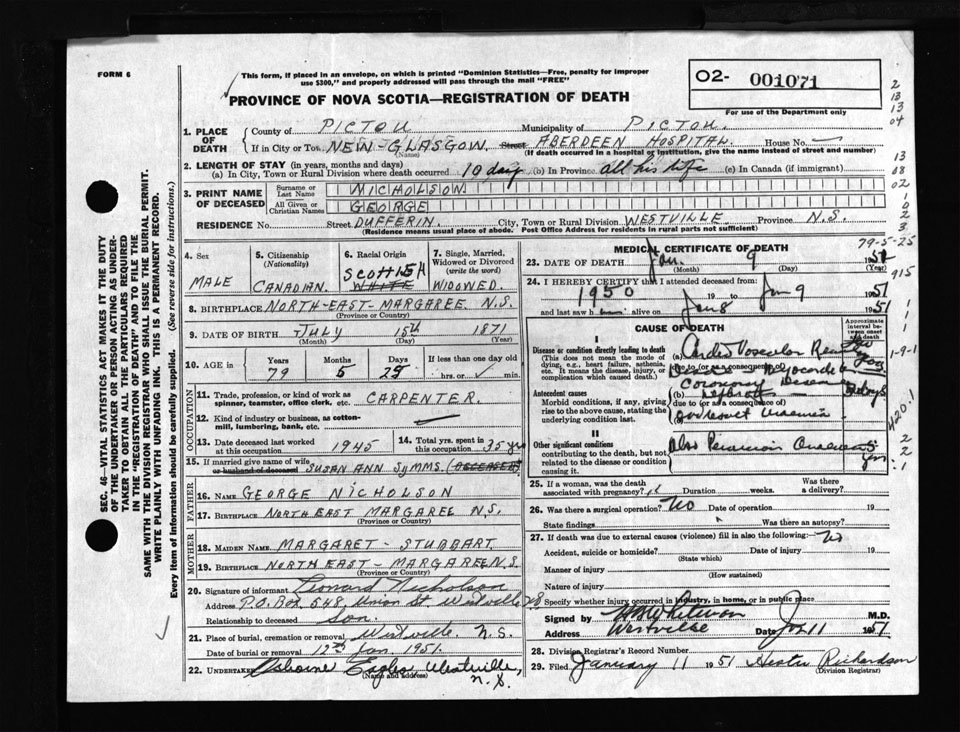 FORM 6
This form, if placed in an envelope, on which is printed "Dominion Statistics—Free, penalty for improper
use $300," and properly addressed will pass through the mail "FREE"
PROVINCE OF NOVA SCOTIA—REGISTRATION OF DEATH
02- 001071
For use of the Department only
1. PLACE OF DEATH
County of PICTOU Municipality of PICTOU.
If in City or Town NEW-GLASGOW. Street ABERDEEN HOSPITAL. House No.
(Name) (If death occurred in a hospital or institution, give the name instead of street and number)
2. LENGTH OF STAY (in years, months and days)
(a) In City, Town or Rural Division where death occurred 10 days (b) In Province all his life (c) In Canada (if immigrant)
3. PRINT NAME OF DECEASED
Surname or Last Name NICHOLSON
All Given or Christian Names GEORGE
RESIDENCE No. Street DUFFERIN. City, Town or Rural Division WESTVILLE. Province N.S.
(Residence means usual place of abode. Post Office Address for residents in rural parts not sufficient)
4. Sex MALE
5. Citizenship (Nationality) CANADIAN.
6. Racial Origin SCOTTISH WHITE
7. Single, Married, Widowed or Divorced (write the word) WIDOWED.
8. BIRTHPLACE NORTH-EAST-MARGAREE. N.S.
(Province or Country)
9. DATE OF BIRTH JULY 15th 1871
(Month) (Day) (Year)
10. AGE in Years 79 Months 5 Days 25 If less than one day hrs. or min.
OCCUPATION
11. Trade, profession, or kind of work as spinner, teamster, office clerk, etc. CARPENTER.
12. Kind of industry or business, as cotton-mill, lumbering, bank, etc.
13. Date deceased last worked at this occupation 1945
14. Total yrs. spent in this occupation 35 yrs
15. If married give name of wife or husband of deceased SUSAN ANN SYMMS. (DECEASED)
FATHER
16. NAME GEORGE NICHOLSON
17. BIRTHPLACE NORTH EAST MARGAREE N.S.
(Province or Country)
MOTHER
18. MAIDEN NAME MARGARET- STUBBART.
19. BIRTHPLACE NORTH EAST- MARGAREE N.S.
(Province or Country)
20. Signature of informant Leonard Nicholson
Address P.O. Box 548, Union St. Westville N.S
Relationship to deceased Son.
21. Place of burial, cremation or removal Westville. N.S.
Date of burial or removal 12th Jan. 1951.
22. UNDERTAKER Osborne Westville, N.S.
(Name and address)
MEDICAL CERTIFICATE OF DEATH
79-5-25
23. DATE OF DEATH Jan. 9 1951
(Month) (Day) (Year)
24. I HEREBY CERTIFY that I attended deceased from:
1950 19 to Jan 9 1951
and last saw h alive on Jan 8 1951
CAUSE OF DEATH
Approximate interval between onset and death
I
Disease or condition directly leading to death
(This does not mean the mode of dying, e.g., heart failure, asthenia, etc. It means the disease, injury, or complication which caused death.)
(a) Cardio Vascular Renal
due to (or as a consequence of)
Coronary Disease
Antecedent causes
Morbid conditions, if any, giving rise to the above cause, stating the underlying condition last.
(b) Nephritis
due to (or as a consequence of)
II
Other significant conditions contributing to the death, but not related to the disease or condition causing it.
Also 5 yrs.
25. If a woman, was the death associated with pregnancy? Duration weeks. Was there a delivery?
26. Was there a surgical operation? No Date of operation 19
State findings Was there an autopsy?
27. If death was due to external causes (violence) fill in also the following: No
Accident, suicide or homicide? Date of injury 19
(State which)
Manner of injury
(How sustained)
Nature of injury
Specify whether injury occurred in industry, in home, or in public place
Signed by M.D.
Address Westville Date Jan 11 1951
28. Division Registrar's Record Number
29. Filed January 11 1951 Richardson
(Division Registrar)
SEC. 46—VITAL STATISTICS ACT MAKES IT THE DUTY
OF THE UNDERTAKER OR PERSON ACTING AS UNDERTAKER TO OBTAIN ALL THE PARTICULARS REQUIRED
IN THE "REGISTRATION OF DEATH" AND TO FILE THE
SAME WITH THE DIVISION REGISTRAR WHO SHALL ISSUE THE BURIAL PERMIT.
WRITE PLAINLY WITH UNFADING INK. THIS IS A PERMANENT RECORD.
Every item of information should be carefully supplied. (See reverse side for instructions.)
2
13
13
04
13
08
02
1
0
2
3
915
1
1
1
1-9-1
420.1
2
2
1